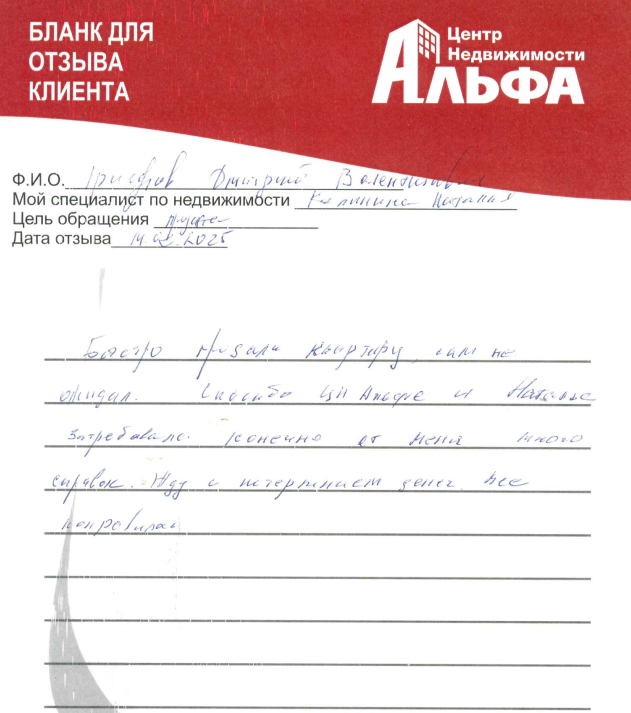 БЛАНК ДЛЯ
ОТЗЫВА
КЛИЕНТА
Центр
Недвижимости
АЛЬФА
Ф.И.О. Дмитрий Валентинович
Мой специалист по недвижимости Калинина Наталия
Цель обращения продажа
Дата отзыва 14.02.2025
Быстро продали квартиру, сам не
ожидал. Спасибо ЦН Альфе и Наталье
Затребовала конечно от меня много
справок. Жду с нетерпением денег. Все
понравилось